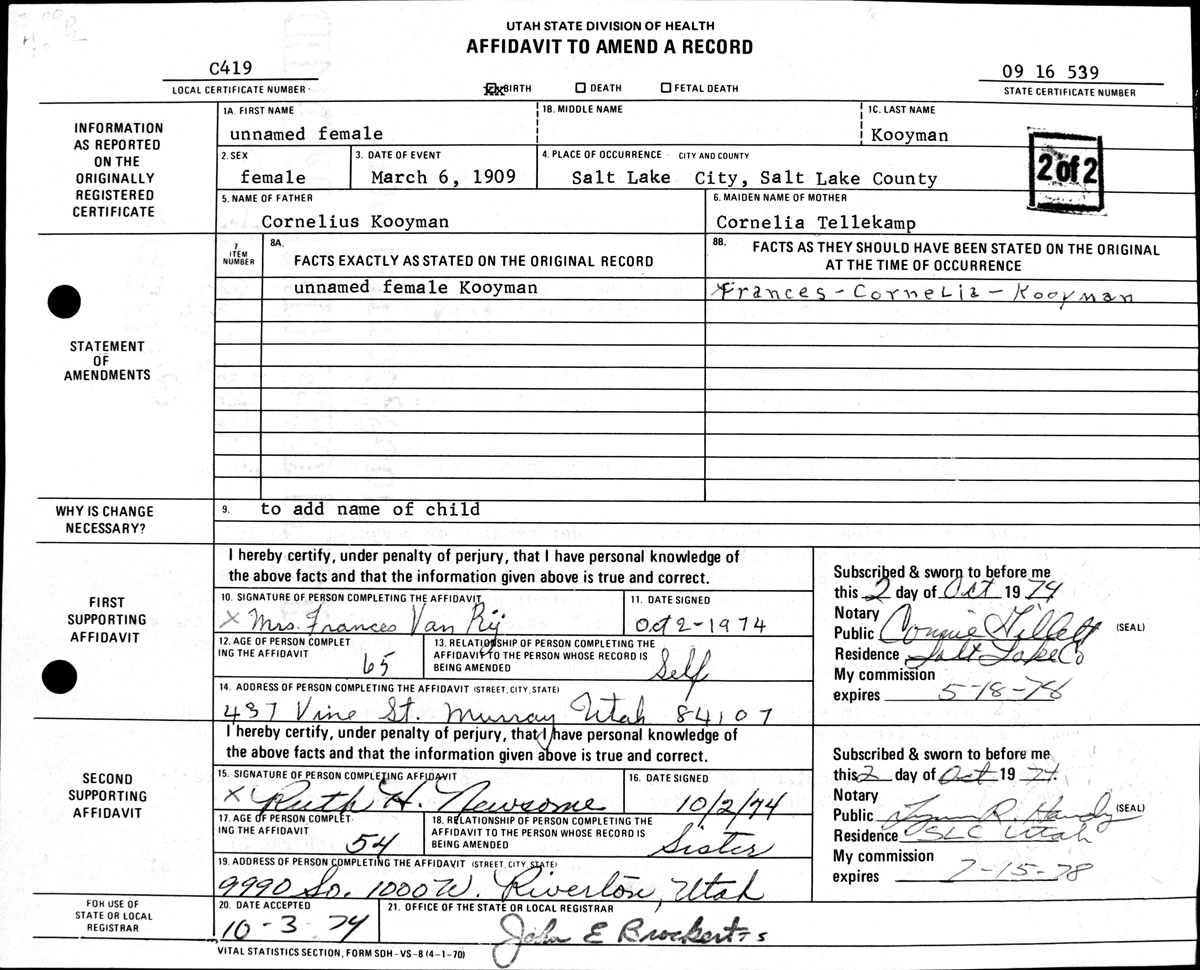 UTAH STATE DIVISION OF HEALTH
AFFIDAVIT TO AMEND A RECORD
C419
LOCAL CERTIFICATE NUMBER
BIRTH DEATH FETAL DEATH
09 16 539
STATE CERTIFICATE NUMBER
INFORMATION
AS REPORTED
ON THE
ORIGINALLY
REGISTERED
CERTIFICATE
1A. FIRST NAME 1B. MIDDLE NAME 1C. LAST NAME
unnamed female Kooyman
2 of 2
2. SEX 3. DATE OF EVENT 4. PLACE OF OCCURRENCE - CITY AND COUNTY
female March 6, 1909 Salt Lake City, Salt Lake County
5. NAME OF FATHER 6. MAIDEN NAME OF MOTHER
Cornelius Kooyman Cornelia Tellekamp
STATEMENT
OF
AMENDMENTS
7
ITEM
NUMBER
8A.
FACTS EXACTLY AS STATED ON THE ORIGINAL RECORD
8B. FACTS AS THEY SHOULD HAVE BEEN STATED ON THE ORIGINAL
AT THE TIME OF OCCURRENCE
unnamed female Kooyman Frances - Cornelia - Kooyman
WHY IS CHANGE
NECESSARY?
9. to add name of child
FIRST
SUPPORTING
AFFIDAVIT
I hereby certify, under penalty of perjury, that I have personal knowledge of
the above facts and that the information given above is true and correct.
10. SIGNATURE OF PERSON COMPLETING THE AFFIDAVIT 11. DATE SIGNED
X Mrs. Frances Van Rij Oct 2-1974
12. AGE OF PERSON COMPLET
ING THE AFFIDAVIT
65
13. RELATIONSHIP OF PERSON COMPLETING THE
AFFIDAVIT TO THE PERSON WHOSE RECORD IS
BEING AMENDED
Self
14. ADDRESS OF PERSON COMPLETING THE AFFIDAVIT (STREET, CITY, STATE)
437 Vine St. Murray Utah 84107
Subscribed & sworn to before me
this 2 day of Oct 1974
Notary
Public Connie Gillett (SEAL)
Residence Salt Lake Co
My commission
expires 5-18-78
SECOND
SUPPORTING
AFFIDAVIT
I hereby certify, under penalty of perjury, that I have personal knowledge of
the above facts and that the information given above is true and correct.
15. SIGNATURE OF PERSON COMPLETING AFFIDAVIT 16. DATE SIGNED
X Ruth H. Newsome 10/2/74
17. AGE OF PERSON COMPLET-
ING THE AFFIDAVIT
54
18. RELATIONSHIP OF PERSON COMPLETING THE
AFFIDAVIT TO THE PERSON WHOSE RECORD IS
BEING AMENDED
Sister
19. ADDRESS OF PERSON COMPLETING THE AFFIDAVIT (STREET, CITY, STATE)
9990 So. 1000 W. Riverton, Utah
Subscribed & sworn to before me
this 2 day of Oct 1974
Notary
Public Lynn R. Handy (SEAL)
Residence SLC Utah
My commission
expires 7-15-78
FOR USE OF
STATE OR LOCAL
REGISTRAR
20. DATE ACCEPTED 21. OFFICE OF THE STATE OR LOCAL REGISTRAR
10-3 74 John E Brockert TS
VITAL STATISTICS SECTION, FORM SDH-VS-8 (4-1-70)